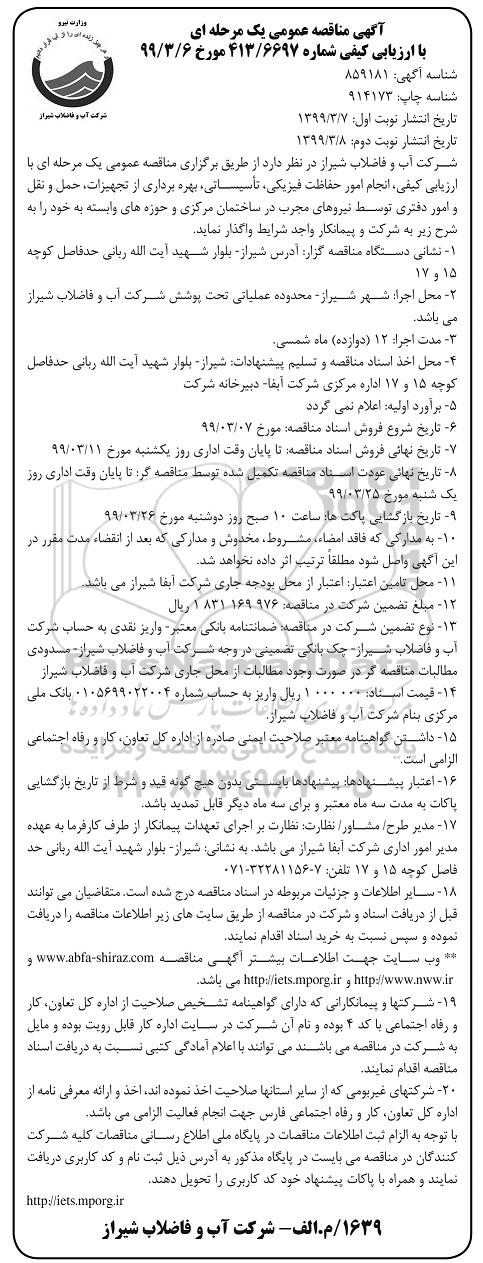 وزارت نیرو
شرکت آب و فاضلاب شیراز
آگهی مناقصه عمومی یک مرحله ای
با ارزیابی کیفی شماره ۴۱۳/۶۶۹۷ مورخ ۹۹/۳/۶
شناسه آگهی: ۸۵۹۱۸۱
شناسه چاپ: ۹۱۴۱۷۳
تاریخ انتشار نوبت اول: ۱۳۹۹/۳/۷
تاریخ انتشار نوبت دوم: ۱۳۹۹/۳/۸
شرکت آب و فاضلاب شیراز در نظر دارد از طریق برگزاری مناقصه عمومی یک مرحله ای با
ارزیابی کیفی، انجام امور حفاظت فیزیکی، تأسیساتی، بهره برداری از تجهیزات، حمل و نقل
و امور دفتری توسط نیروهای مجرب در ساختمان مرکزی و حوزه های وابسته به خود را به
شرح زیر به شرکت و پیمانکار واجد شرایط واگذار نماید.
۱- نشانی دستگاه مناقصه گزار: آدرس شیراز- بلوار شهید آیت الله ربانی حدفاصل کوچه
۱۵ و ۱۷
۲- محل اجرا: شهر شیراز- محدوده عملیاتی تحت پوشش شرکت آب و فاضلاب شیراز
می باشد.
۳- مدت اجرا: ۱۲ (دوازده) ماه شمسی.
۴- محل اخذ اسناد مناقصه و تسلیم پیشنهادات: شیراز- بلوار شهید آیت الله ربانی حدفاصل
کوچه ۱۵ و ۱۷ اداره مرکزی شرکت آبفا- دبیرخانه شرکت
۵- برآورد اولیه: اعلام نمی گردد
۶- تاریخ شروع فروش اسناد مناقصه: مورخ ۹۹/۰۳/۰۷
۷- تاریخ نهائی فروش اسناد مناقصه: تا پایان وقت اداری روز یکشنبه مورخ ۹۹/۰۳/۱۱
۸- تاریخ نهائی عودت اسناد مناقصه تکمیل شده توسط مناقصه گر: تا پایان وقت اداری روز
یک شنبه مورخ ۹۹/۰۳/۲۵
۹- تاریخ بازگشایی پاکت ها: ساعت ۱۰ صبح روز دوشنبه مورخ ۹۹/۰۳/۲۶
۱۰- به مدارکی که فاقد امضاء، مشروط، مخدوش و مدارکی که بعد از انقضاء مدت مقرر در
این آگهی واصل شود مطلقاً ترتیب اثر داده نخواهد شد.
۱۱- محل تامین اعتبار: اعتبار از محل بودجه جاری شرکت آبفا شیراز می باشد.
۱۲- مبلغ تضمین شرکت در مناقصه: ۹۷۶ ۱۶۹ ۸۳۱ ۱ ریال
۱۳- نوع تضمین شرکت در مناقصه: ضمانتنامه بانکی معتبر- واریز نقدی به حساب شرکت
آب و فاضلاب شیراز- چک بانکی تضمینی در وجه شرکت آب و فاضلاب شیراز- مسدودی
مطالبات مناقصه گر در صورت وجود مطالبات از محل جاری شرکت آب و فاضلاب شیراز
۱۴- قیمت اسناد: ۰۰۰ ۰۰۰ ۱ ریال واریز به حساب شماره ۰۱۰۵۶۹۹۰۲۲۰۰۴ بانک ملی
مرکزی بنام شرکت آب و فاضلاب شیراز.
۱۵- داشتن گواهینامه معتبر صلاحیت ایمنی صادره از اداره کل تعاون، کار و رفاه اجتماعی
الزامی است.
۱۶- اعتبار پیشنهادها: پیشنهادها بایستی بدون هیچ گونه قید و شرط از تاریخ بازگشایی
پاکات به مدت سه ماه معتبر و برای سه ماه دیگر قابل تمدید باشد.
۱۷- مدیر طرح/ مشاور/ نظارت: نظارت بر اجرای تعهدات پیمانکار از طرف کارفرما به عهده
مدیر امور اداری شرکت آبفا شیراز می باشد. به نشانی: شیراز- بلوار شهید آیت الله ربانی حد
فاصل کوچه ۱۵ و ۱۷ تلفن: ۷-۳۲۲۸۱۱۵۶-۰۷۱
۱۸- سایر اطلاعات و جزئیات مربوطه در اسناد مناقصه درج شده است. متقاضیان می توانند
قبل از دریافت اسناد و شرکت در مناقصه از طریق سایت های زیر اطلاعات مناقصه را دریافت
نموده و سپس نسبت به خرید اسناد اقدام نمایند.
** وب سایت جهت اطلاعات بیشتر آگهی مناقصه www.abfa-shiraz.com و
http://www.nww.ir و http://iets.mporg.ir می باشد.
۱۹- شرکتها و پیمانکارانی که دارای گواهینامه تشخیص صلاحیت از اداره کل تعاون، کار
و رفاه اجتماعی با کد ۴ بوده و نام آن شرکت در سایت اداره کار قابل رویت بوده و مایل
به شرکت در مناقصه می باشند می توانند با اعلام آمادگی کتبی نسبت به دریافت اسناد
مناقصه اقدام نمایند.
۲۰- شرکتهای غیربومی که از سایر استانها صلاحیت اخذ نموده اند، اخذ و ارائه معرفی نامه از
اداره کل تعاون، کار و رفاه اجتماعی فارس جهت انجام فعالیت الزامی می باشد.
با توجه به الزام ثبت اطلاعات مناقصات در پایگاه ملی اطلاع رسانی مناقصات کلیه شرکت
کنندگان در مناقصه می بایست در پایگاه مذکور به آدرس ذیل ثبت نام و کد کاربری دریافت
نمایند و همراه با پاکات پیشنهاد خود کد کاربری را تحویل دهند.
http://iets.mporg.ir
۱۶۳۹/م.الف- شرکت آب و فاضلاب شیراز